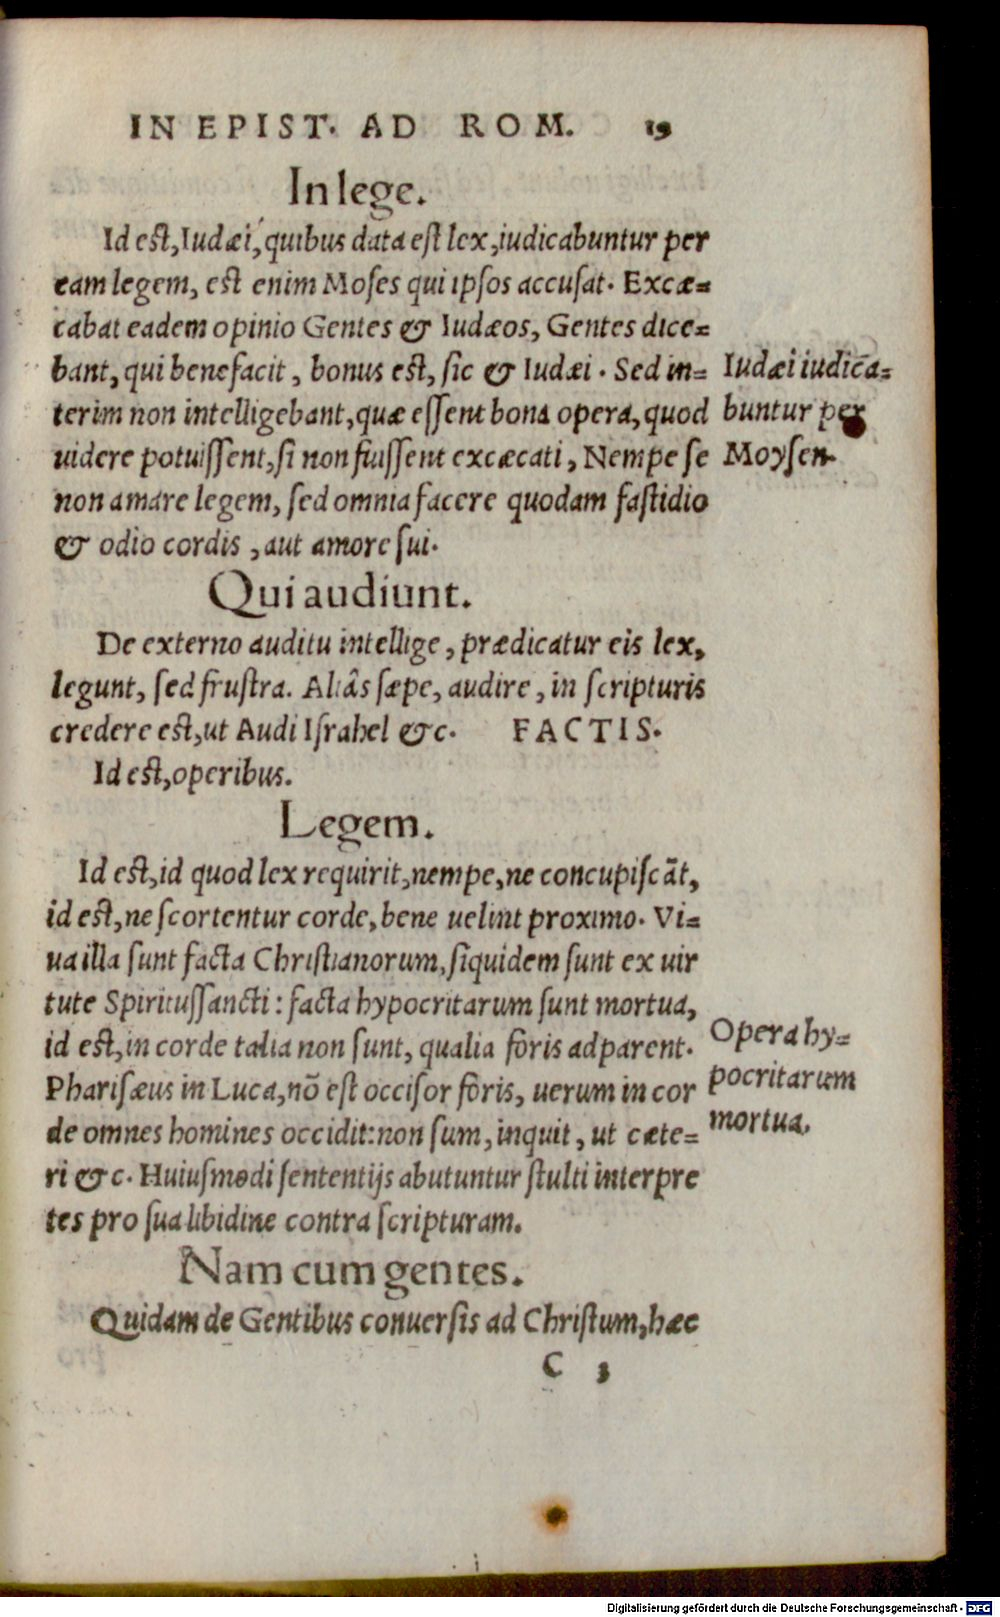 IN EPIST. AD ROM. 19
In lege.
Id est, Iudæi, quibus data est lex, iudicabuntur per
eam legem, est enim Moses qui ipsos accusat. Excæ=
cabat eadem opinio Gentes & Iudæos, Gentes dice=
bant, qui benefacit, bonus est, sic & Iudæi. Sed in=
terim non intelligebant, quæ essent bona opera, quod
uidere potuissent, si non fuissent excæcati, Nempe se
non amare legem, sed omnia facere quodam fastidio
& odio cordis, aut amore sui.
Iudæi iudicā=
buntur per
Moysen.
Qui audiunt.
De externo auditu intellige, prædicatur eis lex,
legunt, sed frustra. Aliâs sæpe, audire, in scripturis
credere est, ut Audi Israhel &c. FACTIS.
Id est, operibus.
Legem.
Id est, id quod lex requirit, nempe, ne concupiscāt,
id est, ne scortentur corde, bene uelint proximo. Vi=
ua illa sunt facta Christianorum, siquidem sunt ex uir
tute Spiritussancti: facta hypocritarum sunt mortua,
id est, in corde talia non sunt, qualia foris adparent.
Pharisæus in Luca, nō est occisor foris, uerum in cor
de omnes homines occidit: non sum, inquit, ut cæte=
ri &c. Huiusmodi sententijs abutuntur stulti interpre
tes pro sua libidine contra scripturam.
Opera hy=
pocritarum
mortua.
Nam cum gentes.
Quidam de Gentibus conuersis ad Christum, hæc
C 3
Digitalisierung gefördert durch die Deutsche Forschungsgemeinschaft - DFG